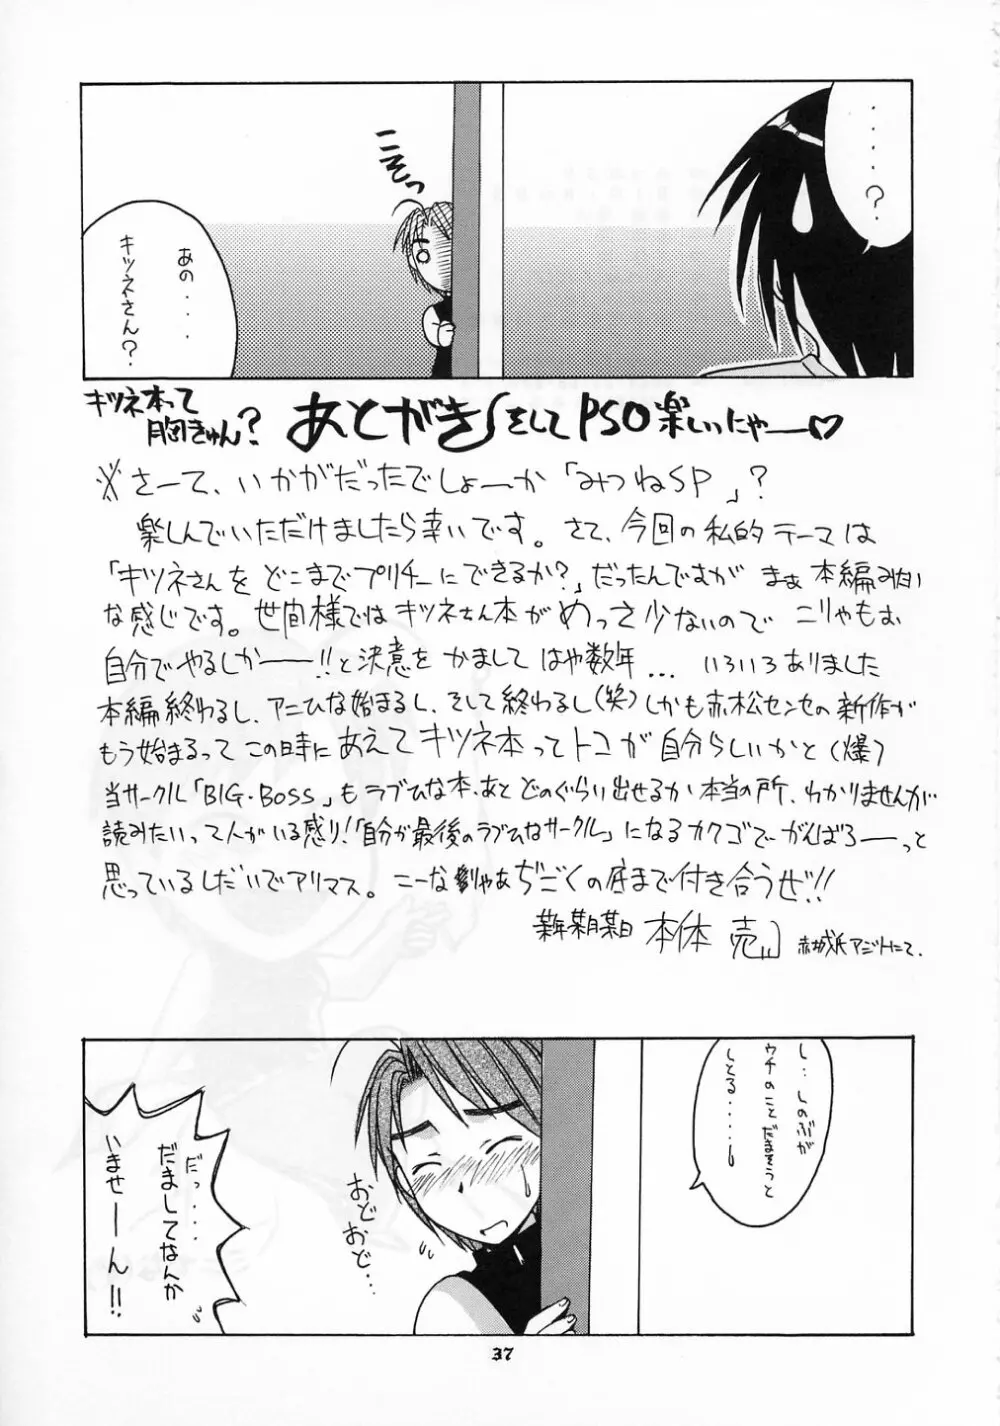 ・・・・・？
こそっ
あの・・・
キツネさん？
キツネ本って
胸きゅん？
あとがき そしてPSO楽しいにゃー♡
※さーて、いかがだったでしょーか「みつねSP」？
楽しんでいただけましたら幸いです。さて、今回の私的テーマは
「キツネさんをどこまでプリチーにできるか？」だったんですがまぁ本編みたい
な感じです。世間様ではキツネさん本がめっさ少ないのでこりゃもぉ
自分でやるしかーー!!と決意をかましてはや数年...いろいろありました
本編終わるし、アニひな始まるし、そして終わるし(笑)しかも赤松センセの新作が
もう始まるってこの時にあえてキツネ本ってトコが自分らしいかと(爆)
当サークル「BIG・BOSS」もラブひな本、あとどのぐらい出せるか本当の所、わかりませんが
読みたいって人がいる限り!「自分が最後のラブひなサークル」になるカクゴでがんばろーーっと
思っているしだいでアリマス。こーなりゃあぢごくの底まで付き合うぜ!!
某年某月某日 本体 売 赤城氏アジトにて.
し・・しのぶが
ウチのことだまそうと
しとる・・・・
おど
おど・・・
だっ・・・・
だましてなんか
いませーん!!
37